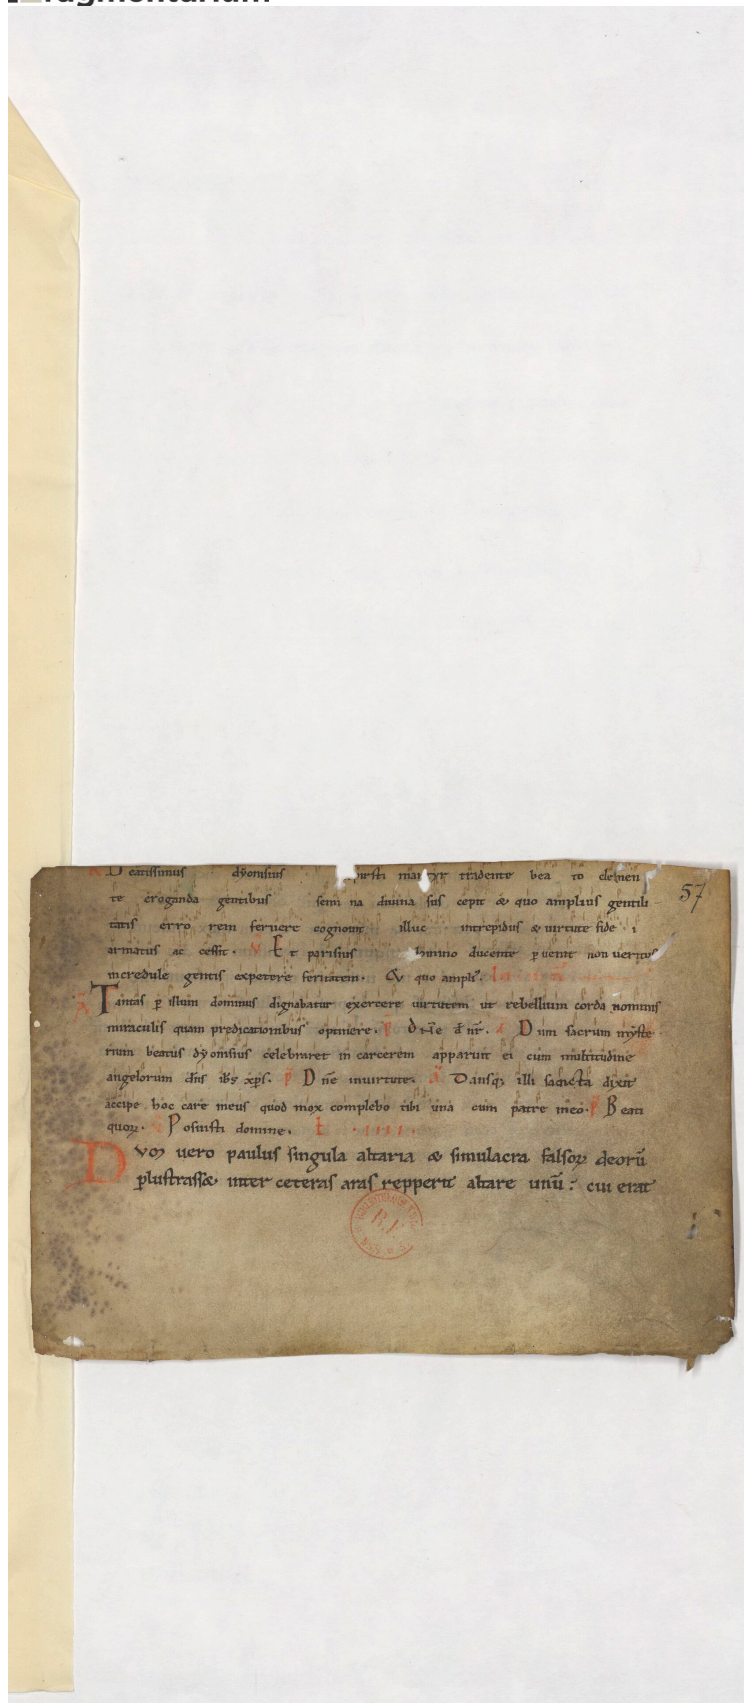 Beatissimus dyonisius martyr tradente bea to clemen
te eroganda gentibus semi na diuina sus cepit & quo amplius gentili
tatis erro rem feruere cognouit illuc intrepidus & uirtute fidei
armatus ac cessit. V Et parisius domino ducente puenit non ueritus
incredule gentis expetere feritatem. Et quo ampli.
A Tantas p illum dominus dignabatur exercere uirtutem ut rebellium corda hominis
miraculis quam predicationibus optinere. Dum sacrum myste
rium beatus dyonisius celebraret in carcerem apparuit ei cum multitudine
angelorum dns ihs xps. Dne inuirtute. A Dansq; illi sancta dixit
accipe hoc care meus quod mox complebo tibi una cum patre meo. Beati
quoꝝ. Posuisti domine. L .IIII.
Dum uero paulus singula altaria & simulacra falsoꝝ deorū
plustrass& inter ceteras aras repperit altare unū: cui erat
57
B.F